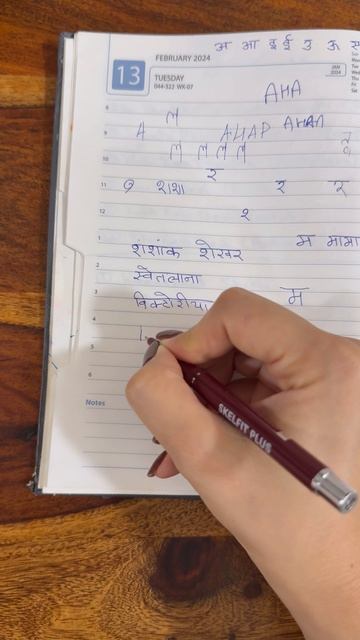 अ आ इ ई उ ऊ
FEBRUARY 2024
13
TUESDAY
044-322 WK-07
JAN
2024
АНА
А
АНАР
8
9
10
11
12
1
2
3
4
5
6
शशा
र
र
र
म मामा
शशांक शेखर
स्वेतलाना
म
विक्टोरीया
Notes
SKELFIT PLUS